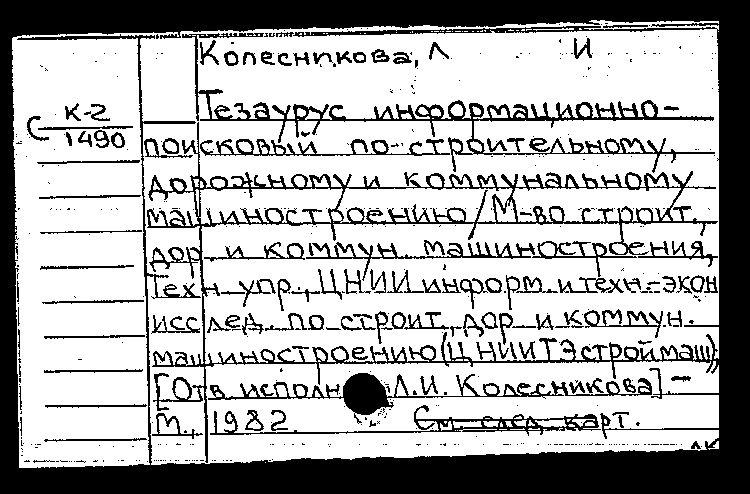 Колесникова, Л И
С К-2
1490
Тезаурус информационно-
поисковый по строительному,
дорожному и коммунальному
машиностроению / М-во строит.,
дор. и коммун. машиностроения,
Техн. упр., ЦНИИ информ. и техн.-экон
исслед. по строит., дор и коммун.
машиностроению (ЦНИИТЭстроймаш);
[Отв исполн Л.И. Колесникова]. —
М., 1982. См. след. карт.